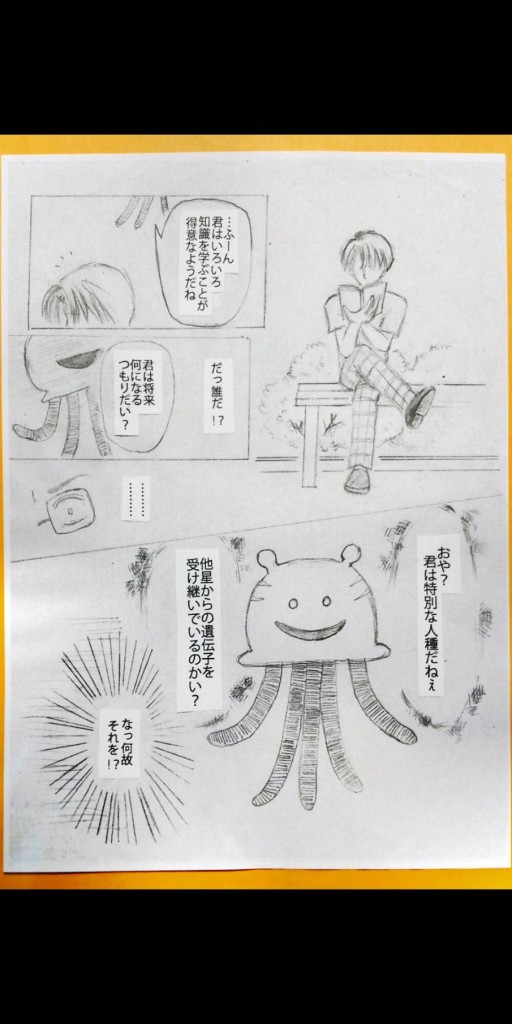 …ふーん
君はいろいろ
知識を学ぶことが
得意なようだね
だっ誰だ!?
君は将来
何になる
つもりだい?
………
おや?
君は特別な人種だねぇ
他星からの遺伝子を
受け継いでいるのかい?
なっ何故
それを!?